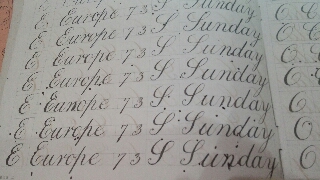 Sunday
E Europe 73 S Sunday
E Europe 73 S Sunday O.
E Europe 73 S Sunday O.
E Europe 73 S Sunday O
E Europe 73 S Sunday O
E Europe 73 S Sunday O
E Europe 73 S Sunday O